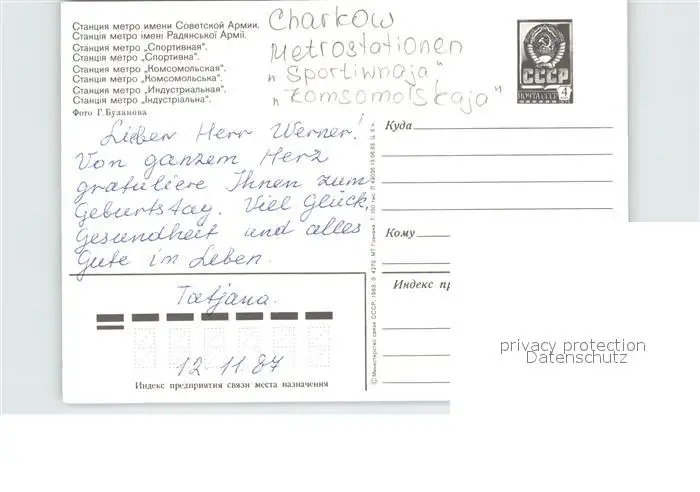 Станция метро имени Советской Армии.
Станція метро імені Радянської Армії.
Станция метро „Спортивная“.
Станція метро „Спортивна“.
Станция метро „Комсомольская“.
Станція метро „Комсомольська“.
Станция метро „Индустриальная“.
Станція метро „Індустріальна“.
Фото Г. Буланова
Charkow
Metrostationen
„Sportiwnaja“
„Komsomolskaja“
СССР
ПОЧТА СССР 4
Lieber Herr Werner!
Von ganzem Herz
gratuliere Ihnen zum
Geburtstag. Viel Glück,
Gesundheit und alles
Gute im Leben.
Tatjana.
12.11.87
Индекс предприятия связи места назначения
© Министерство связи СССР, 1983. З. 4272. МТ Гознака.
Куда
Кому
Индекс пр
privacy protection
Datenschutz